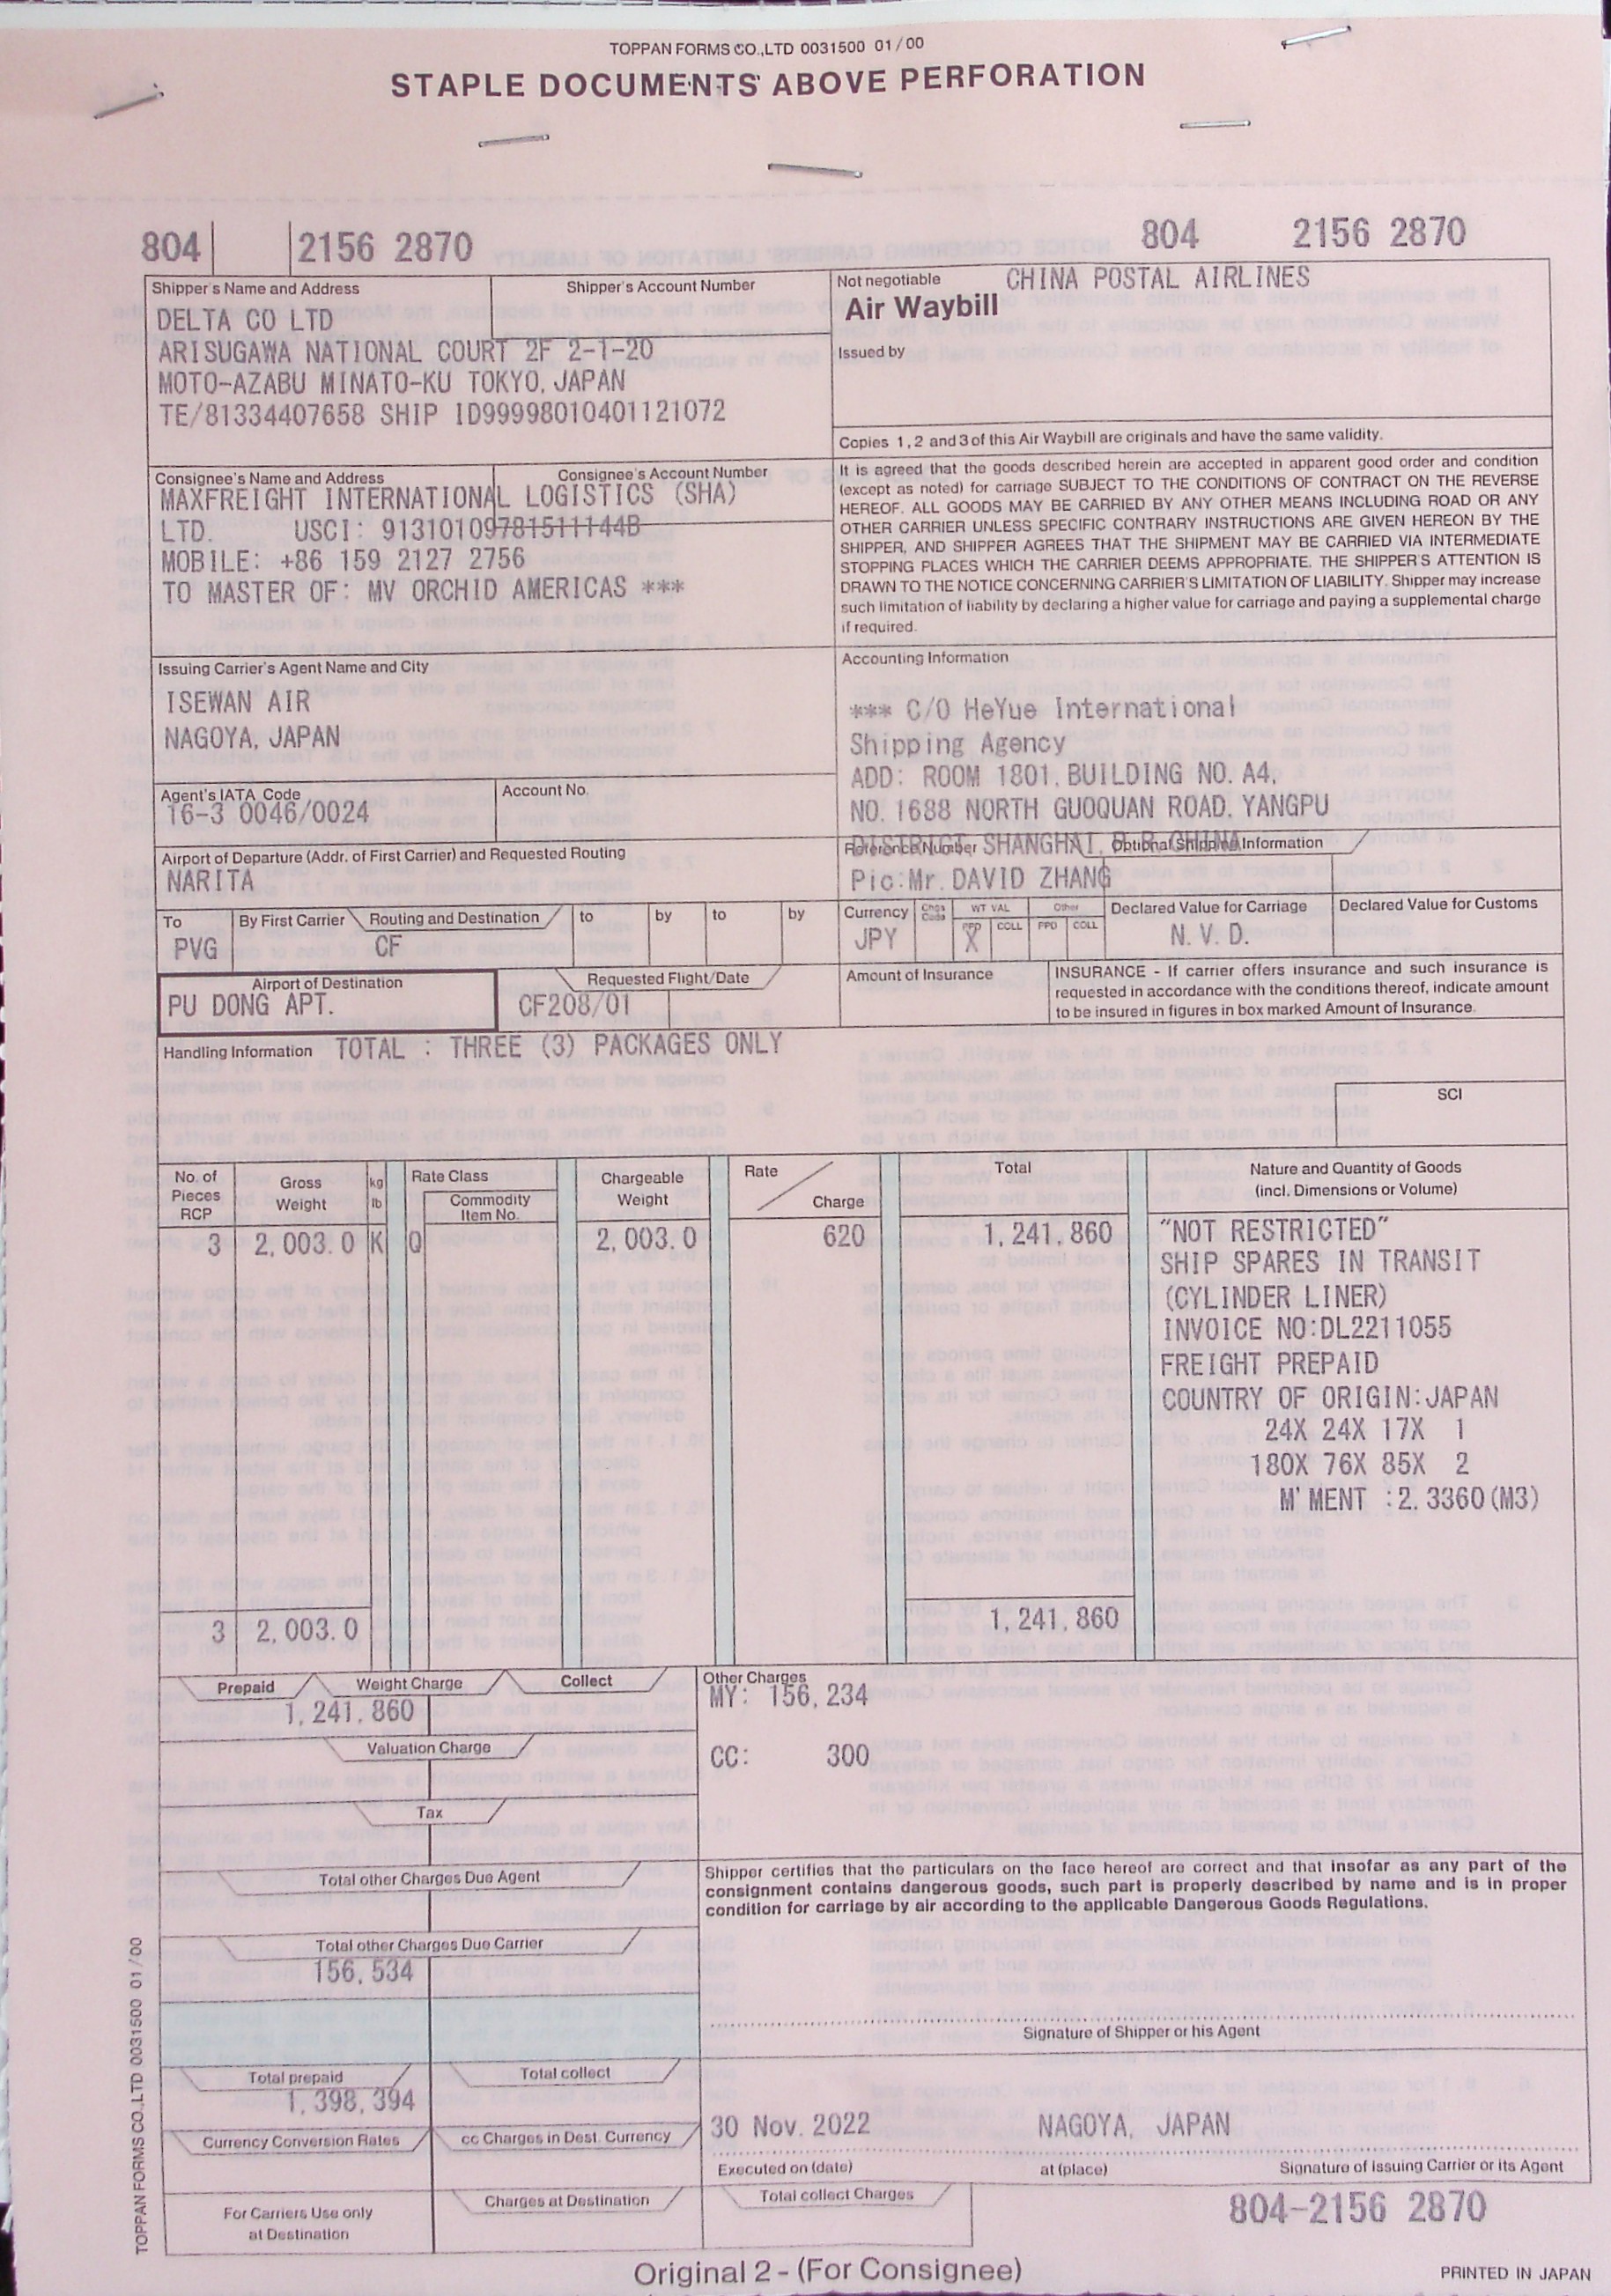 TOPPAN FORMS CO.,LTD 0031500 01/00
STAPLE DOCUMENTS ABOVE PERFORATION
804 2156 2870
804 2156 2870
Shipper's Name and Address
Shipper's Account Number
DELTA CO LTD
ARISUGAWA NATIONAL COURT 2F 2-1-20
MOTO-AZABU MINATO-KU TOKYO, JAPAN
TE/81334407658 SHIP ID99998010401121072
Not negotiable
CHINA POSTAL AIRLINES
Air Waybill
Issued by
Copies 1, 2 and 3 of this Air Waybill are originals and have the same validity.
Consignee's Name and Address
Consignee's Account Number
MAXFREIGHT INTERNATIONAL LOGISTICS (SHA)
LTD. USCI: 91310109781511144B
MOBILE: +86 159 2127 2756
TO MASTER OF: MV ORCHID AMERICAS ***
It is agreed that the goods described herein are accepted in apparent good order and condition
(except as noted) for carriage SUBJECT TO THE CONDITIONS OF CONTRACT ON THE REVERSE
HEREOF. ALL GOODS MAY BE CARRIED BY ANY OTHER MEANS INCLUDING ROAD OR ANY
OTHER CARRIER UNLESS SPECIFIC CONTRARY INSTRUCTIONS ARE GIVEN HEREON BY THE
SHIPPER, AND SHIPPER AGREES THAT THE SHIPMENT MAY BE CARRIED VIA INTERMEDIATE
STOPPING PLACES WHICH THE CARRIER DEEMS APPROPRIATE. THE SHIPPER'S ATTENTION IS
DRAWN TO THE NOTICE CONCERNING CARRIER'S LIMITATION OF LIABILITY. Shipper may increase
such limitation of liability by declaring a higher value for carriage and paying a supplemental charge
if required.
Issuing Carrier's Agent Name and City
ISEWAN AIR
NAGOYA, JAPAN
Accounting Information
*** C/O HeYue International
Shipping Agency
ADD: ROOM 1801, BUILDING NO. A4,
NO. 1688 NORTH GUOQUAN ROAD, YANGPU
DISTRICT SHANGHAI, P.R. CHINA
Pic:Mr. DAVID ZHANG
Agent's IATA Code
Account No.
16-3 0046/0024
Reference Number
Optional Shipping Information
Airport of Departure (Addr. of First Carrier) and Requested Routing
NARITA
To
By First Carrier
Routing and Destination
to
by
to
by
PVG
CF
Currency
Chgs Code
WT VAL
Other
PPD
COLL
PPD
COLL
JPY
X
Declared Value for Carriage
N. V. D.
Declared Value for Customs
Airport of Destination
PU DONG APT.
Requested Flight/Date
CF208/01
Amount of Insurance
INSURANCE - If carrier offers insurance and such insurance is
requested in accordance with the conditions thereof, indicate amount
to be insured in figures in box marked Amount of Insurance.
Handling Information
TOTAL : THREE (3) PACKAGES ONLY
SCI
No. of
Pieces
RCP
Gross
Weight
kg
lb
Rate Class
Commodity
Item No.
Chargeable
Weight
Rate
Charge
Total
Nature and Quantity of Goods
(incl. Dimensions or Volume)
3 2,003.0 K Q 2,003.0 620 1,241,860
"NOT RESTRICTED"
SHIP SPARES IN TRANSIT
(CYLINDER LINER)
INVOICE NO:DL2211055
FREIGHT PREPAID
COUNTRY OF ORIGIN:JAPAN
24X 24X 17X 1
180X 76X 85X 2
M'MENT :2.3360(M3)
3 2,003.0 1,241,860
Prepaid
Weight Charge
Collect
1,241,860
Valuation Charge
Tax
Other Charges
MY: 156,234
CC: 300
Total other Charges Due Agent
Total other Charges Due Carrier
156,534
Shipper certifies that the particulars on the face hereof are correct and that insofar as any part of the
consignment contains dangerous goods, such part is properly described by name and is in proper
condition for carriage by air according to the applicable Dangerous Goods Regulations.
Signature of Shipper or his Agent
Total prepaid
Total collect
1,398,394
Currency Conversion Rates
cc Charges in Dest. Currency
30 Nov. 2022
NAGOYA, JAPAN
Executed on (date)
at (place)
Signature of Issuing Carrier or its Agent
For Carriers Use only
at Destination
Charges at Destination
Total collect Charges
804-2156 2870
TOPPAN FORMS CO.,LTD 0031500 01/00
Original 2 - (For Consignee)
PRINTED IN JAPAN